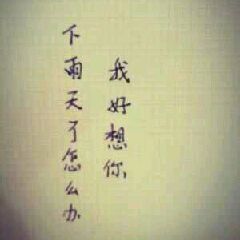 下雨天了怎么办
我好想你